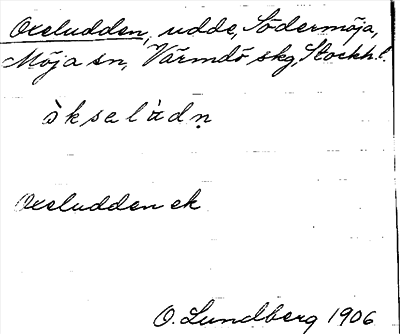 Oxeludden, udde, Södermöja,
Möja sn, Värmdö skg, Stockh.l.
ò̀kselàdṇ
Oxeludden ek
O. Lundberg 1906